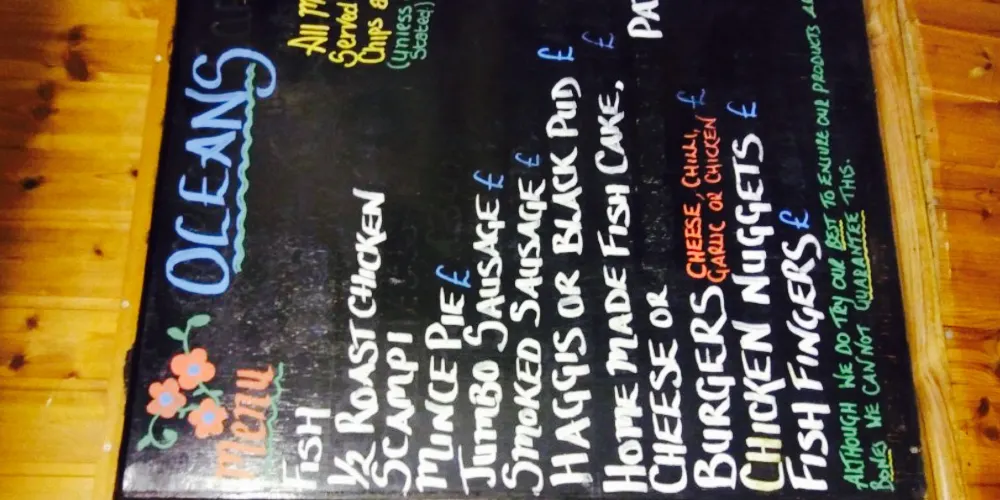 OCEANS
Menu
All M
Served
Chips a
(Unless
Stated)
FISH
1/2 ROAST CHICKEN
SCAMPI
MINCE PIE £
JUMBO SAUSAGE £
SMOKED SAUSAGE £
HAGGIS OR BLACK PUD £
HOME MADE FISH CAKE, £
CHEESE OR PA
BURGERS CHEESE, CHILLI, £
GARLIC OR CHICKEN
CHICKEN NUGGETS £
FISH FINGERS £
ALTHOUGH WE DO TRY OUR BEST TO ENSURE OUR PRODUCTS A
BONES WE CAN NOT GUARANTEE THIS.